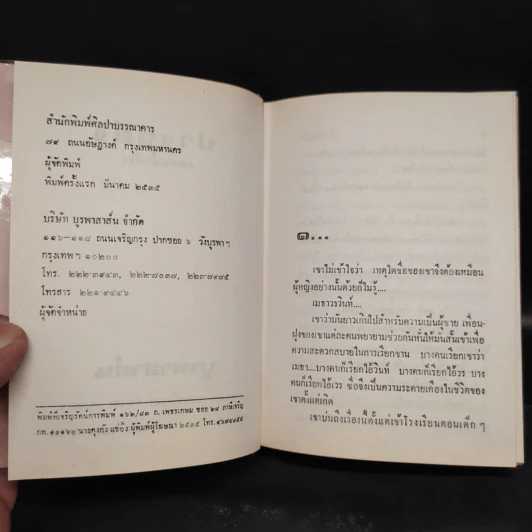 สำนักพิมพ์ศิลปาบรรณาคาร
๗๙ ถนนอัษฎางค์ กรุงเทพมหานคร
ผู้จัดพิมพ์
พิมพ์ครั้งแรก มีนาคม ๒๕๓๕
บริษัท บูรพาสาส์น จำกัด
๑๑๖-๑๑๘ ถนนเจริญกรุง ปากซอย ๖ วังบูรพาฯ
กรุงเทพฯ ๑๐๒๐๐
โทร.
โทรสาร ๒๒๑-๙๔๔๖
ผู้จัดจำหน่าย
พิมพ์ที่เจริญรัตน์การพิมพ์ ถ. เพชรเกษม ซอย ๒๘ ภาษีเจริญ
กท. ผู้พิมพ์ผู้โฆษณา ๒๕๓๕ โทร.
๑...
เขาไม่เข้าใจว่า เหตุใดชื่อของเขาจึงต้องเหมือน
ผู้หญิงอย่างนั้นด้วยก็ไม่รู้....
เมธาวรวินท์....
เขาว่ามันยาวเกินไปสำหรับความเป็นผู้ชาย เพื่อน-
ฝูงของเขาแต่ละคนพยายามช่วยกันหั่นให้มันสั้นเข้าเพื่อ
ความสะดวกสบายในการเรียกขาน บางคนเรียกเขาว่า
เมธา....บางคนก็เรียกไอ้วินท์ บางคนก็เรียกไอ้วร บาง
คนก็เรียกไอ้เวร ชื่อจึงเป็นความระคายเคืองในชีวิตของ
เขาตั้งแต่เกิด
เขาบ่นถึงเรื่องนี้ตั้งแต่เข้าโรงเรียนตอนเด็กๆ